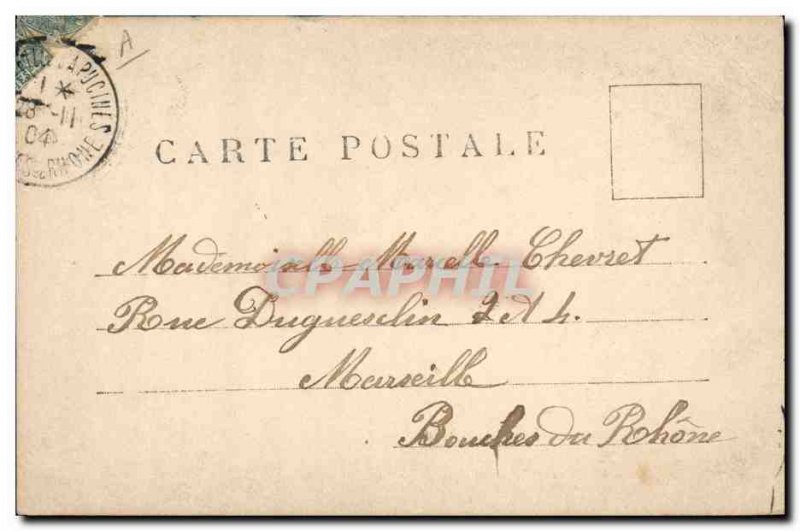 A
CAPUCINES
28 -11
04
RHONE
CARTE POSTALE
CPAPHIL
Mademoiselle Marcelle Chevret
Rue Duguesclin 2 A 4.
Marseille
Bouches du Rhône